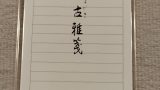 古雅箋